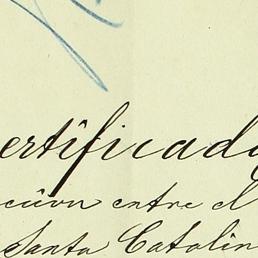 ertificado
ción entre el
Santa Catalin